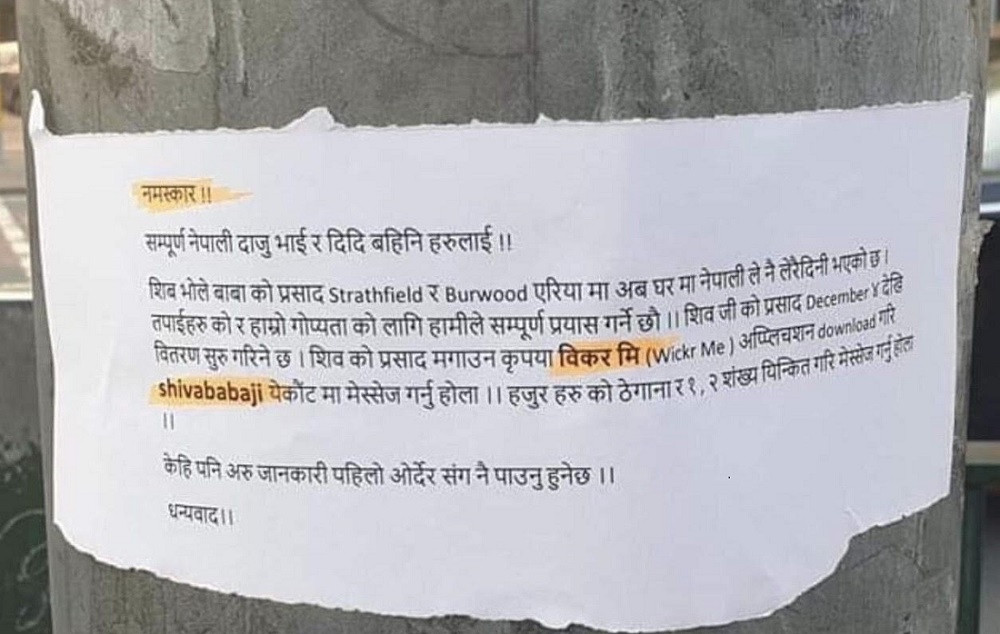 नमस्कार !!
सम्पूर्ण नेपाली दाजु भाई र दिदि बहिनि हरुलाई !!
शिब भोले बाबा को प्रसाद Strathfield र Burwood एरिया मा अब घर मा नेपाली ले नै लेरैदिनी भएको छ ।
तपाईहरु को र हाम्रो गोप्यता को लागि हामीले सम्पूर्ण प्रयास गर्ने छौ ।। शिव जी को प्रसाद December ४ देखि
वितरण सुरु गरिने छ । शिव को प्रसाद मगाउन कृपया विकर मि (Wickr Me ) अप्प्लिचशन download गरि
shivababaji येकौंट मा मेस्सेज गर्नु होला ।। हजुर हरु को ठेगाना र १, २ शंख्य यिन्कित गरि मेस्सेज गर्नु होला
।।
केहि पनि अरु जानकारी पहिलो ओर्देर संग नै पाउनु हुनेछ ।।
धन्यवाद।।